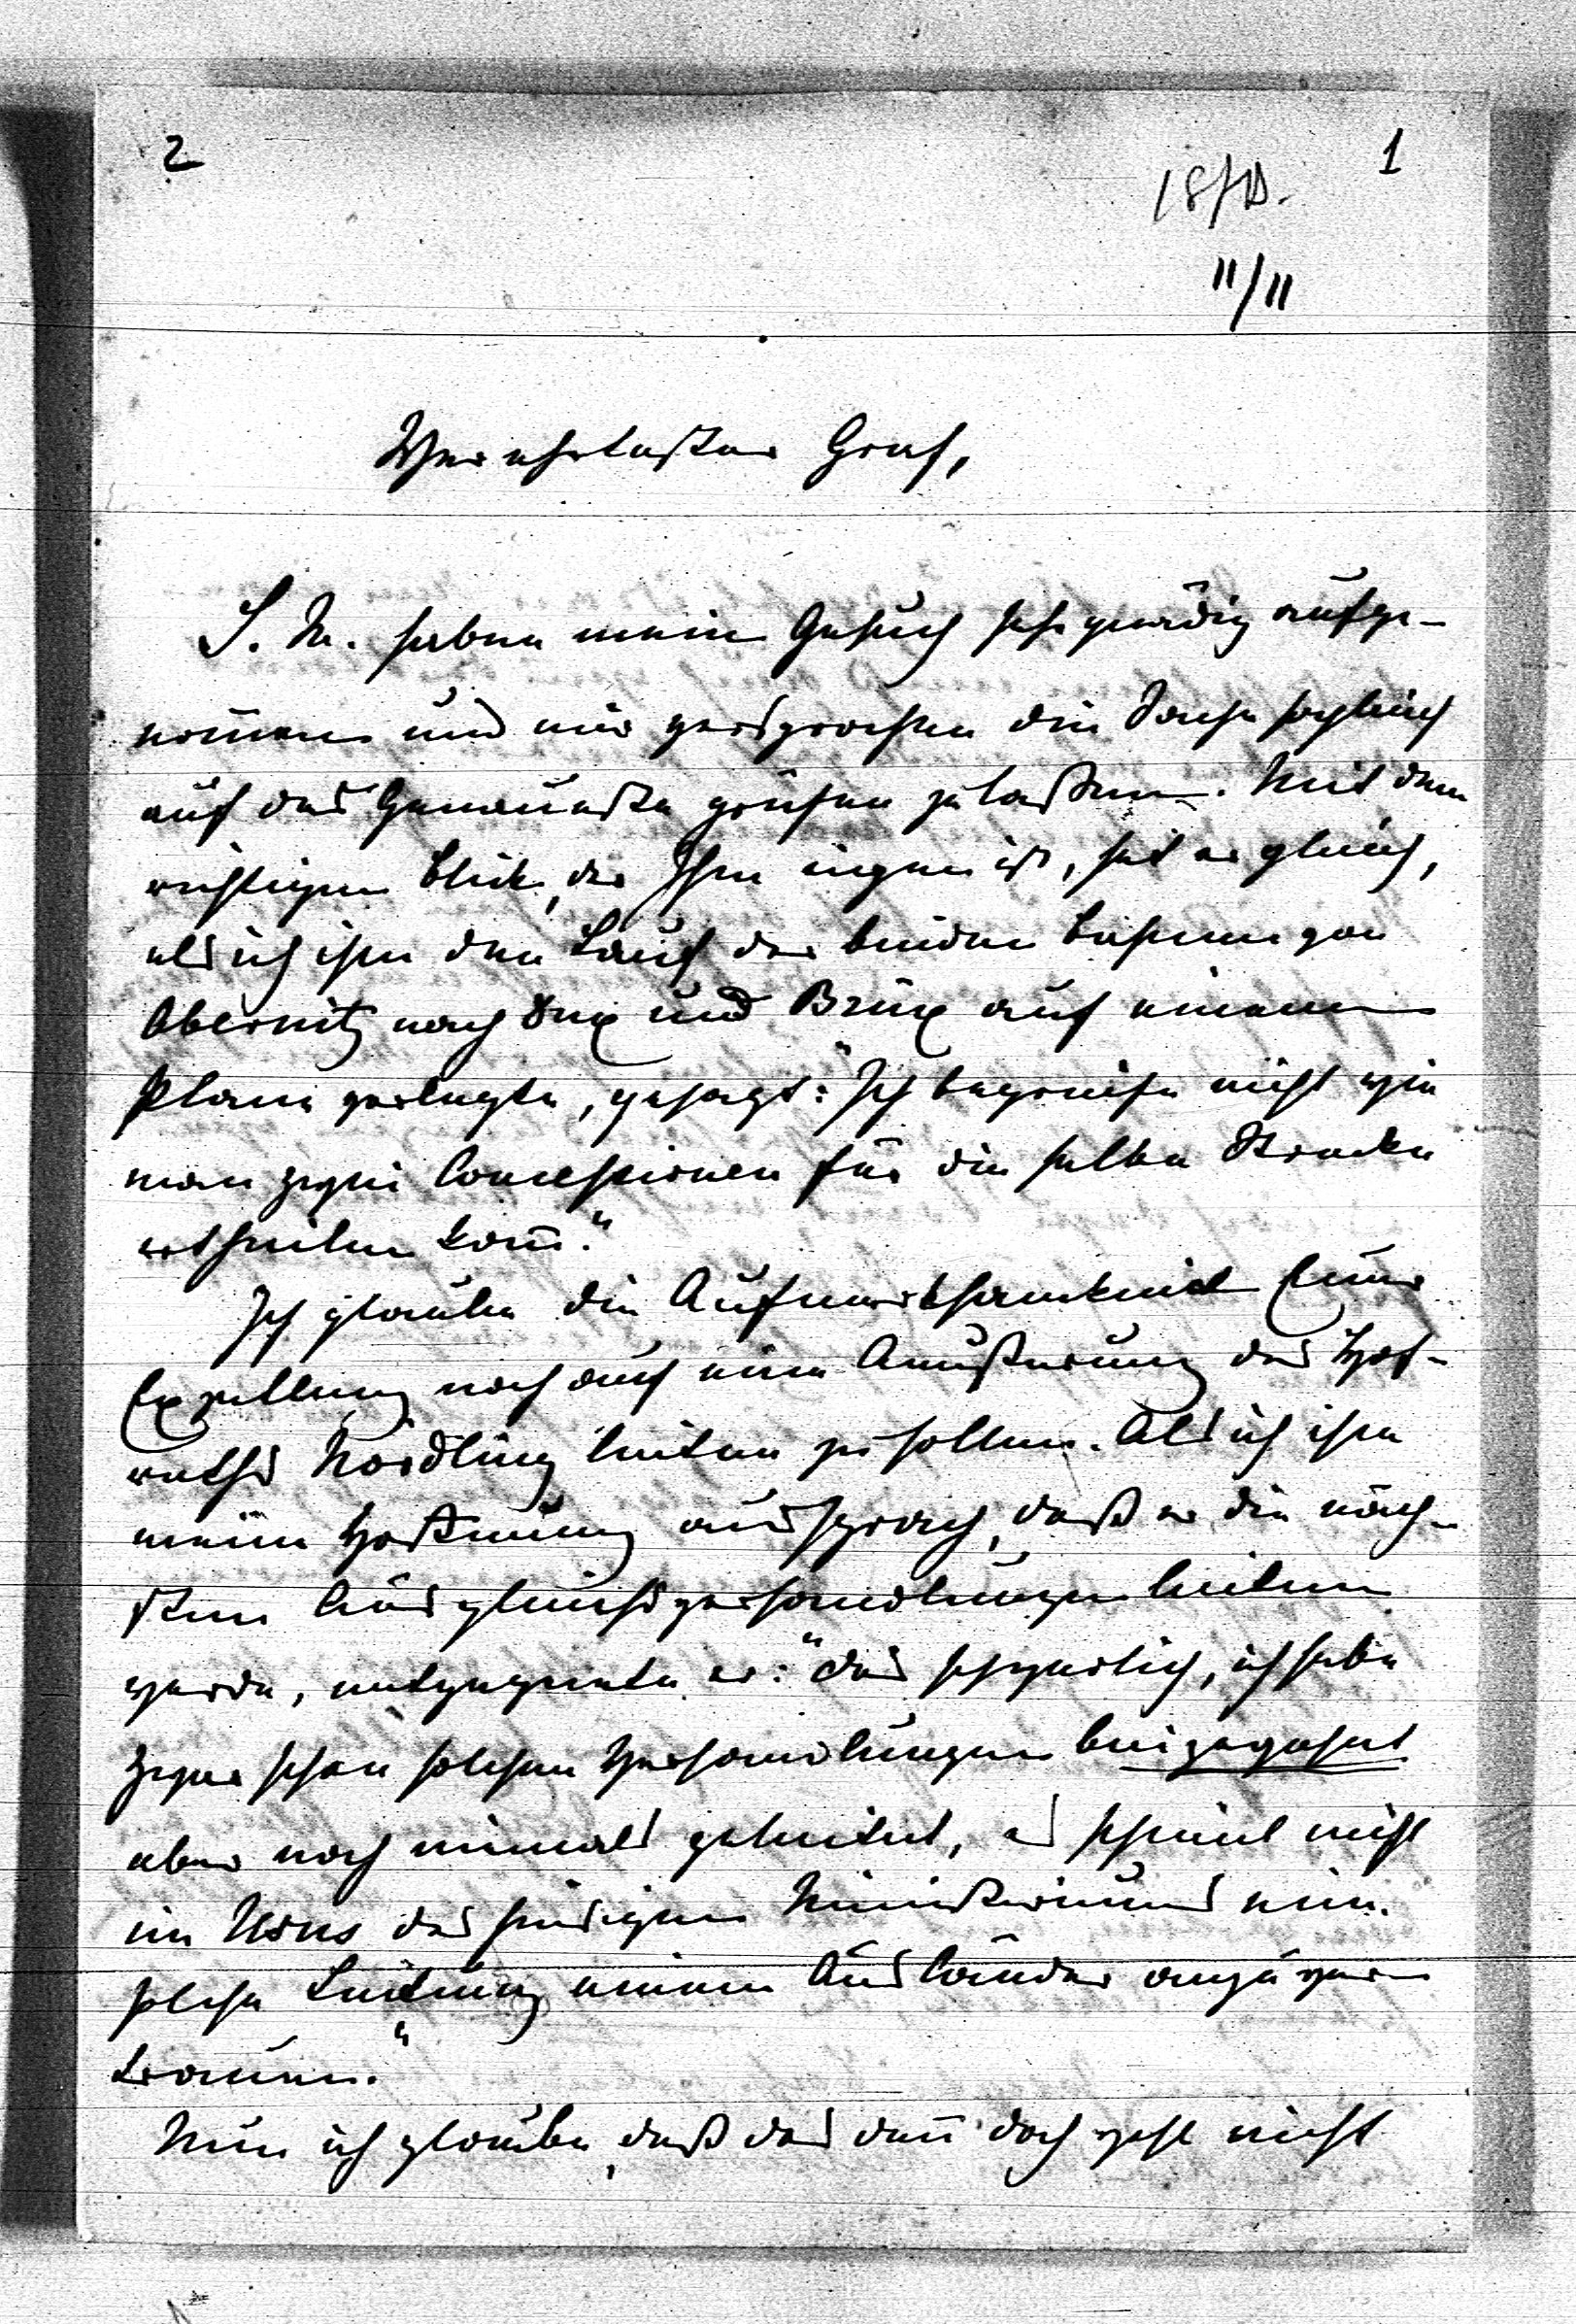 2
1
18/D.
11/11
Verehrtester Graf,
S. M. haben mein Gesuch sehr gnädig aufge-
nom̄en und mir versprochen die Sache sogleich
auf das Genaueste prüfen zu laßen. Mit dem
richtigen Blick, der Ihm eigen ist, hat er gleich,
als ich ihm den Lauf der beiden Bahnen von
Obernitz nach Dux und Brüx auf einem
Plane vorlegte, gesagt: "Ich begreife nicht wie
man zwei Concessionen für die selbe Strecke
ertheilen kan̄."
Ich glaube die Aufmerksamkeit Euer
Exzellenz noch auf eine Aeußerung des Hof-
raths Nördling leiten zu sollen. Als ich ihm
meine Hoffnung aussprach, daß er die näch-
sten Ausgleichsverhandlungen leiten
werde, entgegnete er: "das schwerlich, ich habe
zwar schon solchen Verhandlungen beigewohnt
aber noch niemals geleitet, es scheint nicht
im Usus des hiesigen Ministeriums eine
solche Leitung einem Ausländer anzuver-
trauen."
Nun ich glaube, daß das dan̄ doch wohl nicht